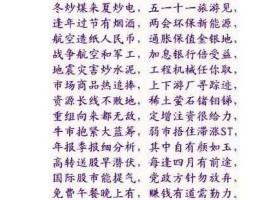 冬炒煤来夏炒电，五一十一旅游见，
逢年过节有烟酒，两会环保新能源，
航空造纸人民币，通胀保值金银地，
战争航空和军工，加息银行倍受益，
地震灾害炒水泥，工程机械任你取，
市场商品热连捧，上下游厂寻踪迹，
资源长线不败地，稀土萤石锗钼锑，
重组向来都无敌，定增注资很给力，
牛市抱紧大蓝筹，弱市捂住滞涨ST，
年报季报细分析，其中自有颜如玉，
高转送股早潜伏，每逢四月有前途，
国际股市能提气，党政方针勿放弃，
免费午餐晚上有，赚钱有道需勤力。